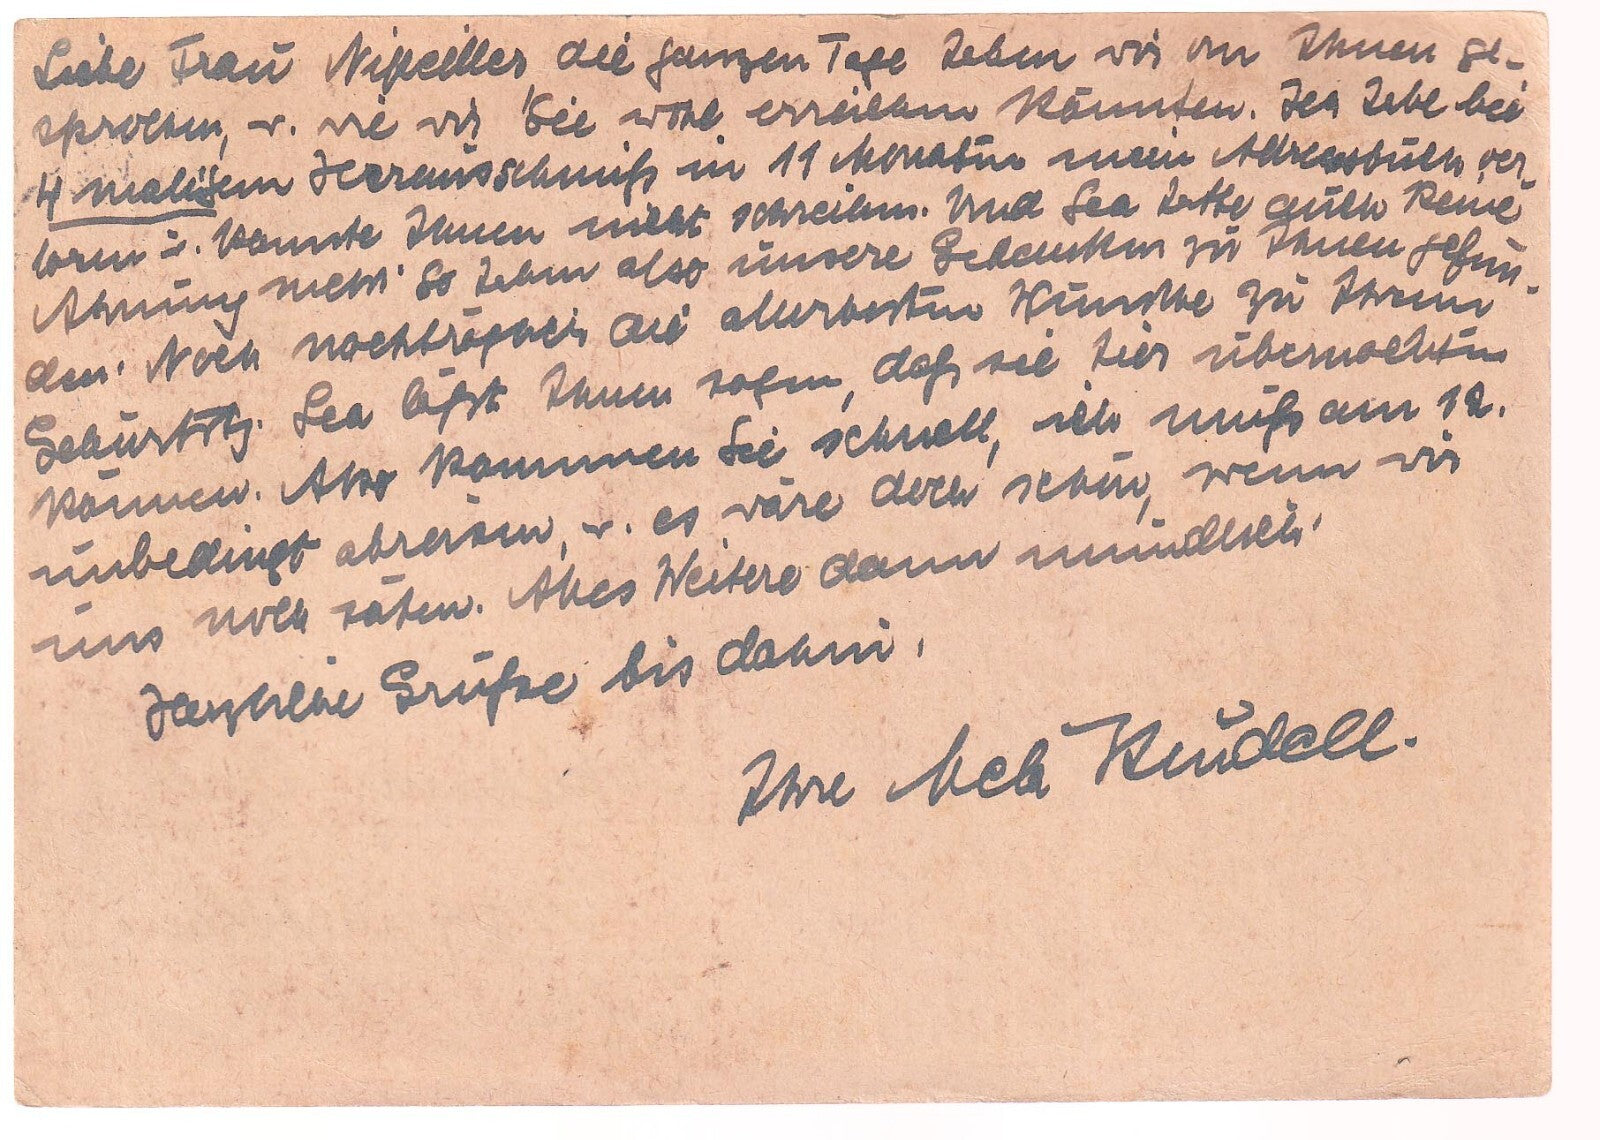 Liebe Frau die ganzen Tage haben wir von Ihnen ge-
sprochen, u. wie wir Sie wohl erreichen könnten. Ich habe bei
4 maligem Herausschmiß in 11 Monaten mein Adressbuch ver-
loren u. konnte Ihnen nicht schreiben. Und Lea hatte auch keine
Ahnung mehr. So haben also unsere Gedanken zu Ihnen gefun-
den. Noch nachträglich die allerbesten Wünsche zu Ihrem
Geburtstg. Lea läßt Ihnen sagen, daß sie hier übernachten
können. Also kommen Sie schnell, ich muß am 12.
unbedingt abreisen, u. es wäre doch schön, wenn wir
uns noch sähen. Alles Weitere dann mündlich.
Herzliche Grüße bis dahin,
Ihre